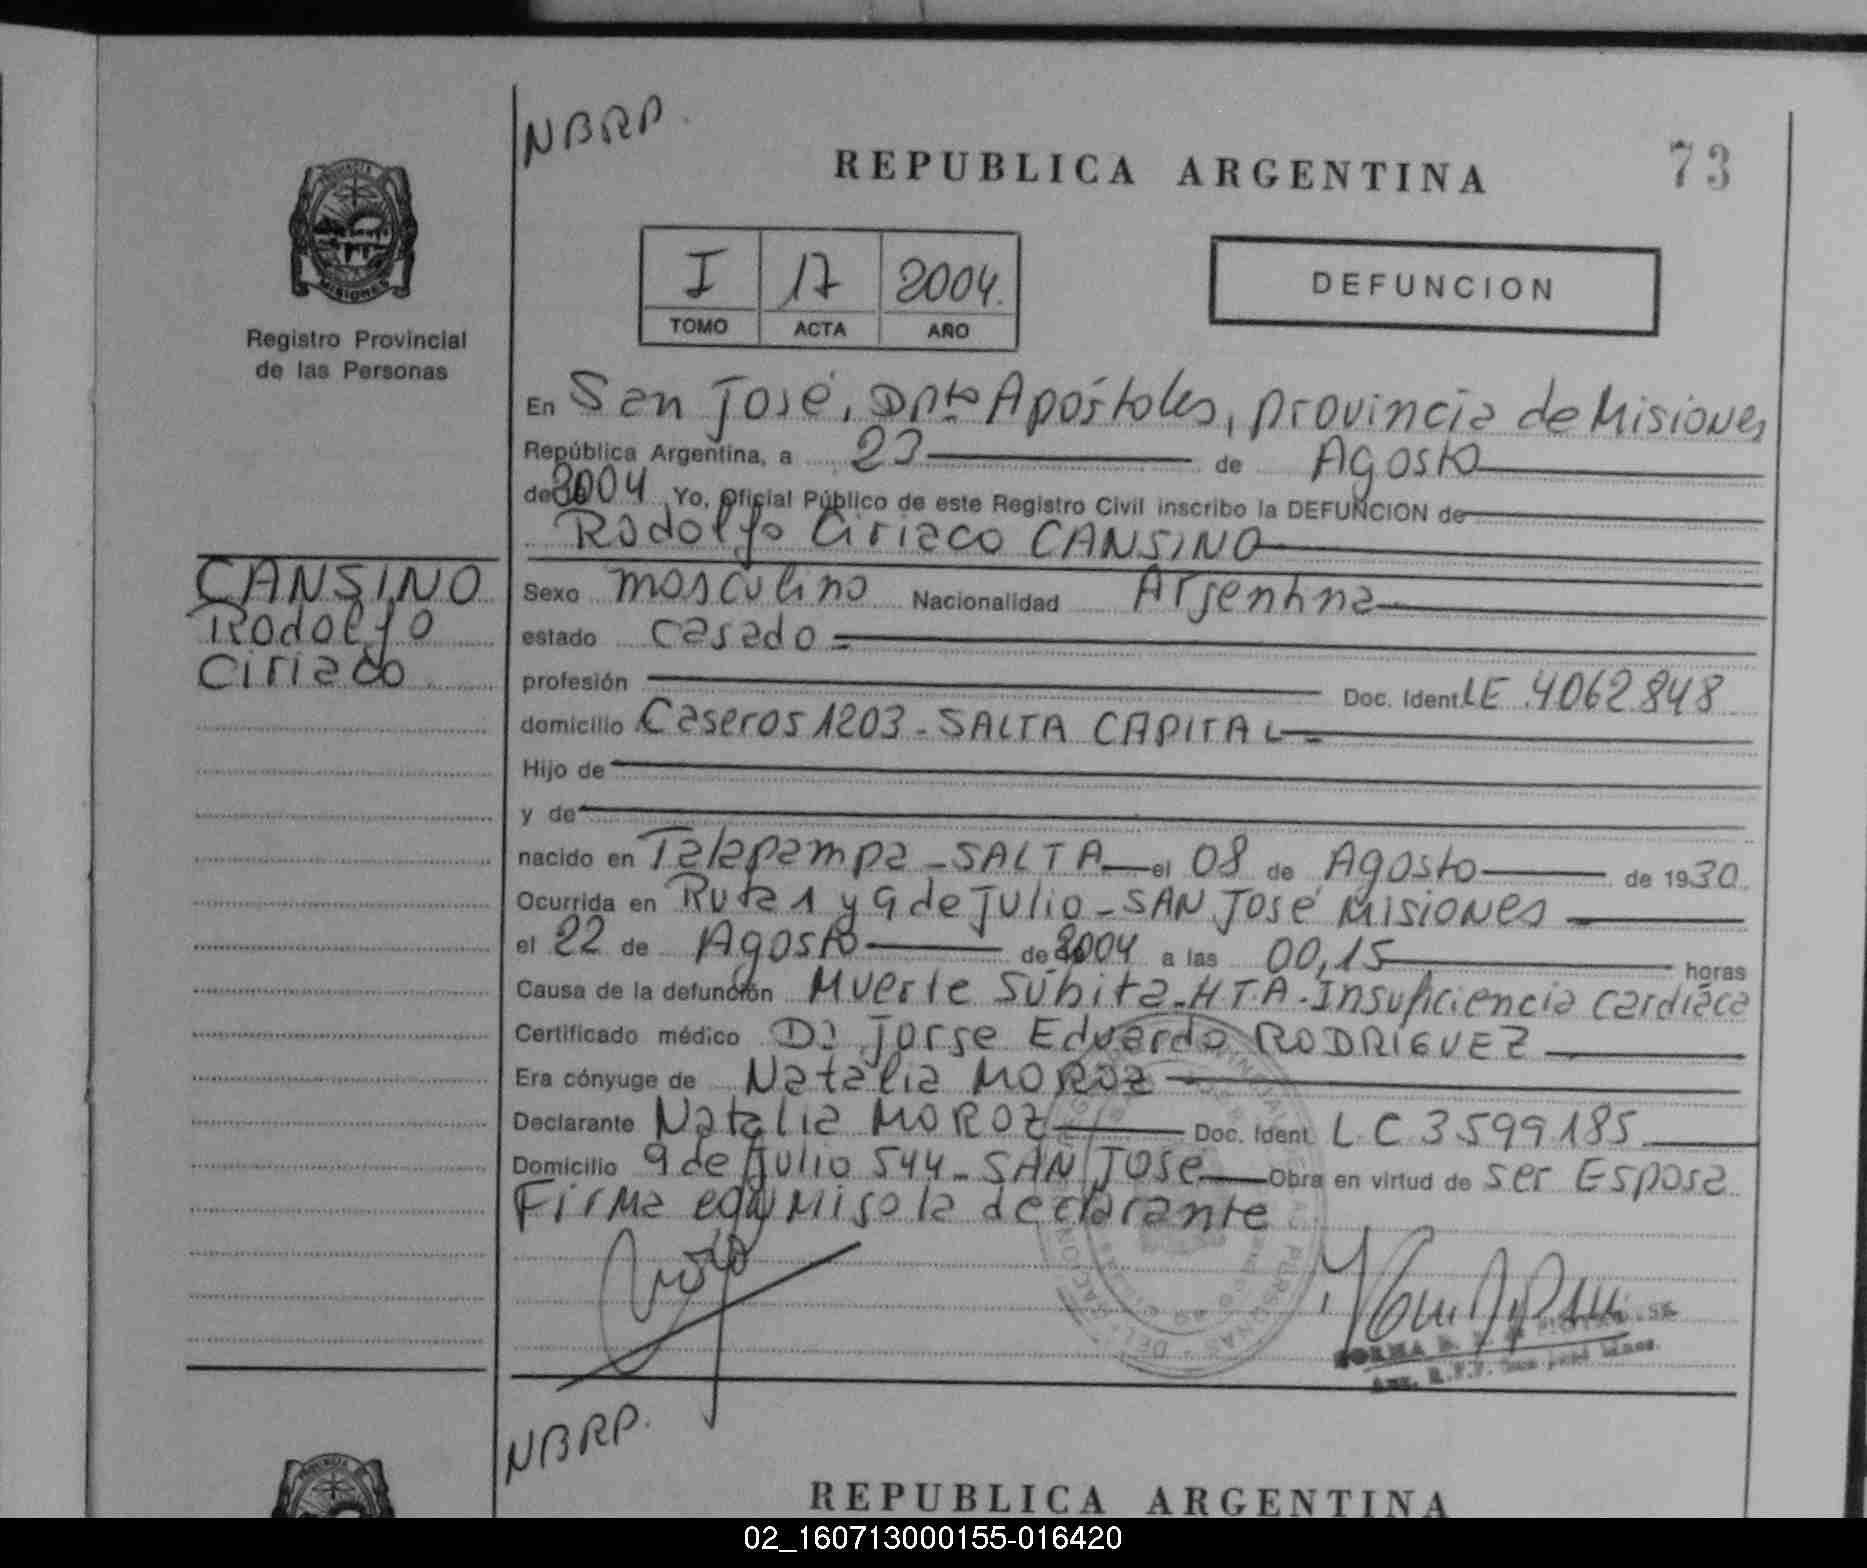 NBRP.
REPUBLICA ARGENTINA
73
PROVINCIA
MISIONES
Registro Provincial
de las Personas
I 17 2004.
TOMO ACTA AÑO
DEFUNCION
En San José, Dpto Apóstoles, provincia de Misiones
República Argentina, a 23 de Agosto
de 2004 Yo, Oficial Público de este Registro Civil inscribo la DEFUNCION de
Rodolfo Ciriaco CANSINO
CANSINO
Rodolfo
Ciriaco
Sexo masculino Nacionalidad Argentina
estado casado
profesión Doc. Ident. LE 4062848
domicilio Caseros 1203 - SALTA CAPITAL -
Hijo de
y de
nacido en Talapampa - SALTA el 08 de Agosto de 1930.
Ocurrida en Ruta 1 y 9 de Julio - SAN José Misiones
el 22 de Agosto de 2004 a las 00,15 horas
Causa de la defunción Muerte Súbita - H.T.A - Insuficiencia cardiaca
Certificado médico Dr Jorge Eduardo RODRIGUEZ
Era cónyuge de Natalia MOROZ
Declarante Natalia MOROZ Doc. Ident. L C 3599185
Domicilio 9 de Julio 544 - SAN JOSE Obra en virtud de ser Esposa
Firma conmigo la declarante
NORMA B.
San José Mnes.
NBRP.
REPUBLICA ARGENTINA
02_160713000155-016420